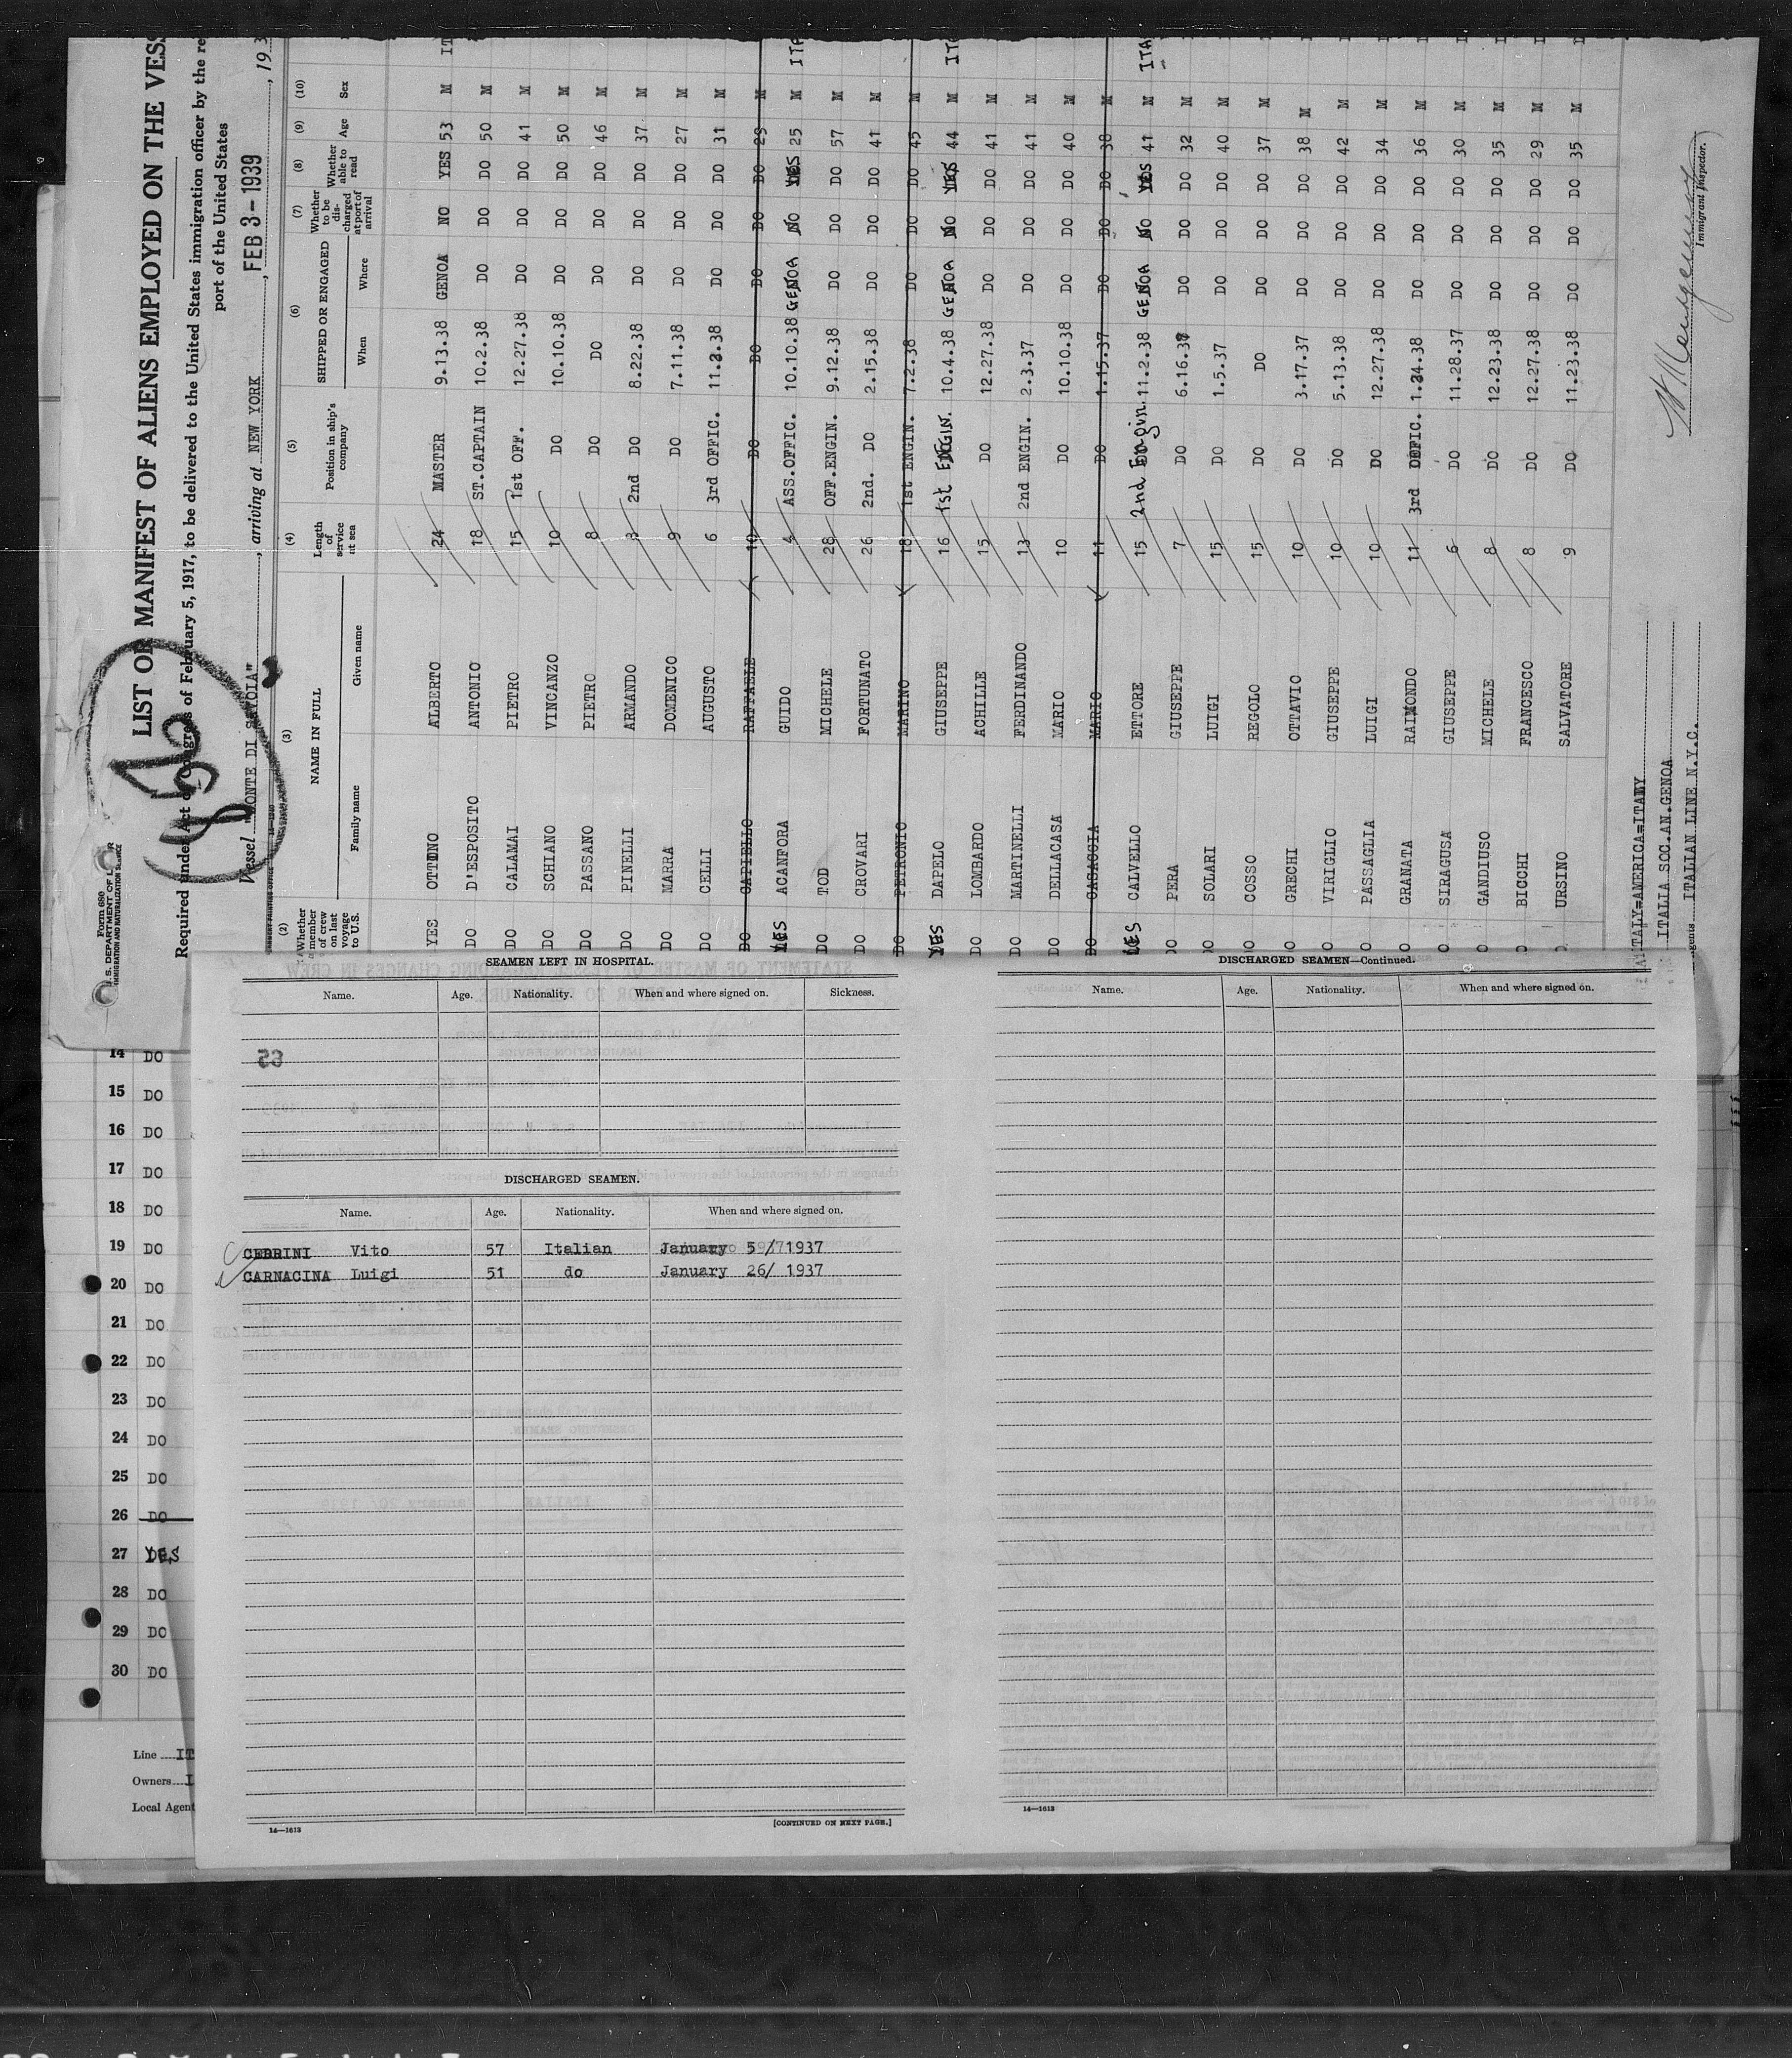 Form 689
U.S. DEPARTMENT OF LABOR
IMMIGRATION AND NATURALIZATION SERVICE
LIST OR MANIFEST OF ALIENS EMPLOYED ON THE VESS
Required under Act of Congress of February 5, 1917, to be delivered to the United States immigration officer by the re
port of the United States
Vessel "MONTE DI SAVOIA", arriving at NEW YORK, FEB 3-1939, 193
(2) (3) (4) (5) (6) (7) (8) (9) (10)
Whether member of crew on last voyage to U.S. NAME IN FULL Length of service at sea Position in ship's company SHIPPED OR ENGAGED Whether to be discharged at port of arrival Whether able to read Age Sex
Family name Given name When Where
YES OTTONO ALBERTO 24 MASTER 9.13.38 GENOA NO YES 53 M IT
DO D'ESPOSITO ANTONIO 18 ST.CAPTAIN 10.2.38 DO DO DO 50 M
DO CALAMAI PIETRO 15 1st OFF. 12.27.38 DO DO DO 41 M
DO SCHIANO VINCANZO 10 DO 10.10.38 DO DO DO 50 M
DO PASSANO PIETRO 8 DO DO DO DO DO 46 M
DO PINELLI ARMANDO 3 2nd DO 8.22.38 DO DO DO 37 M
DO MARRA DOMENICO 9 DO 7.11.38 DO DO DO 27 M
DO CELLI AUGUSTO 6 3rd OFFIC. 11.2.38 DO DO DO 31 M
DO CAPIELLO RAFFAELE 10 DO DO DO DO DO 29 M
YES ACANFORA GUIDO 4 ASS.OFFIC. 10.10.38 GENOA NO YES 25 M ITA
DO TOD MICHELE 28 OFF.ENGIN. 9.12.38 DO DO DO 57 M
DO CROVARI FORTUNATO 26 2nd. DO 2.15.38 DO DO DO 41 M
DO PETRONIO MARINO 18 1st ENGIN. 7.2.38 DO DO DO 45 M
YES DAPELO GIUSEPPE 16 1st ENGIN. 10.4.38 GENOA NO YES 44 M ITA
DO LOMBARDO ACHILLE 15 DO 12.27.38 DO DO DO 41 M
DO MARTINELLI FERDINANDO 13 2nd ENGIN. 2.3.37 DO DO DO 41 M
DO DELLACASA MARIO 10 DO 10.10.38 DO DO DO 40 M
DO CASACCIA MARIO 11 DO 1.15.37 DO DO DO 38 M
YES CALVELLO ETTORE 15 2nd Engin. 11.2.38 GENOA NO YES 41 M ITA
DO PERA GIUSEPPE 7 DO DO DO DO 32 M
DO SOLARI LUIGI 15 DO 1.5.37 DO DO DO 40 M
COSSO REGOLO 15 DO DO DO DO DO 37 M
O GRECHI OTTAVIO 10 DO 3.17.37 DO DO DO 38 M
O VIRIGLIO GIUSEPPE 10 DO 5.13.38 DO DO DO 42 M
O PASSAGLIA LUIGI 10 DO 12.27.38 DO DO DO 34 M
O GRANATA RAIMONDO 11 3rd OFFIC. 1.24.38 DO DO DO 36 M
O SIRAGUSA GIUSEPPE 6 DO 11.28.37 DO DO DO 30 M
O GANDIUSO MICHELE 8 DO 12.23.38 DO DO DO 35 M
O BICCHI FRANCESCO 8 DO 12.27.38 DO DO DO 29 M
O URSINO SALVATORE 9 DO 11.23.38 DO DO DO 35 M
ITALY=AMERICA=ITALY
ITALIA SOC.AN.GENOA
agents ITALIAN LINE N.Y.C.
Immigrant Inspector.
SEAMEN LEFT IN HOSPITAL.
Name. Age. Nationality. When and where signed on. Sickness.
DISCHARGED SEAMEN.
Name. Age. Nationality. When and where signed on.
CEDRINI Vito 57 Italian January 5/1937
CARNACINA Luigi 51 do January 26/ 1937
14—1613
[CONTINUED ON NEXT PAGE.]
DISCHARGED SEAMEN—Continued.
Name. Age. Nationality. When and where signed on.
14—1613
14 DO
15 DO
16 DO
17 DO
18 DO
19 DO
20 DO
21 DO
22 DO
23 DO
24 DO
25 DO
26 DO
27 YES
28 DO
29 DO
30 DO
Line IT
Owners I
Local Agent